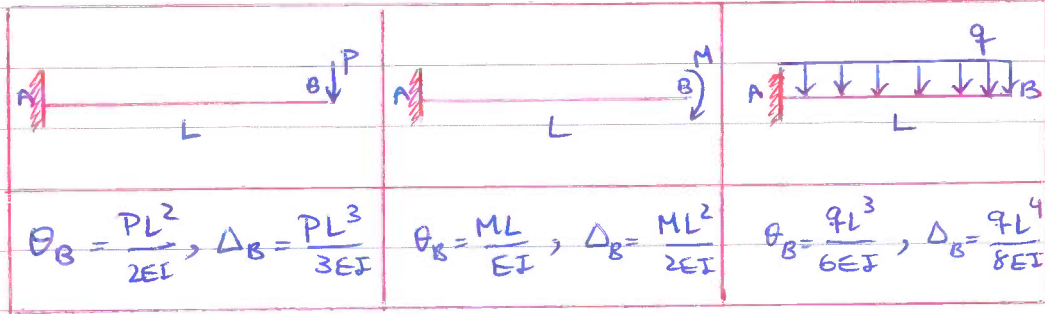 A B P L
A B M L
A q B L
θ_B = PL²/2EI , Δ_B = PL³/3EI
θ_B = ML/EI , Δ_B = ML²/2EI
θ_B = qL³/6EI , Δ_B = qL⁴/8EI